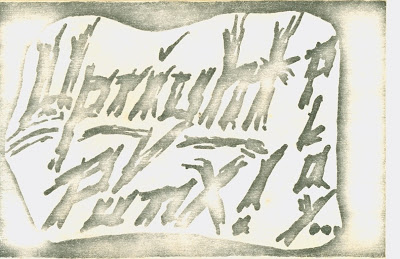 Upright
Punx!
Play...